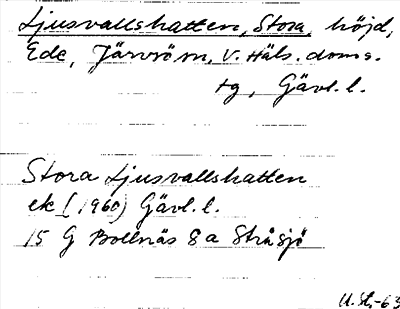 Ljusvallshatten, Stora, höjd,
Ede, Järvsöm, V. Häls. doms.
tg, Gävl. l.
Stora Ljusvallshatten
ek (1960) Gävl. l.
15 G Bollnäs 8 a Stråsjö
U. St.-63